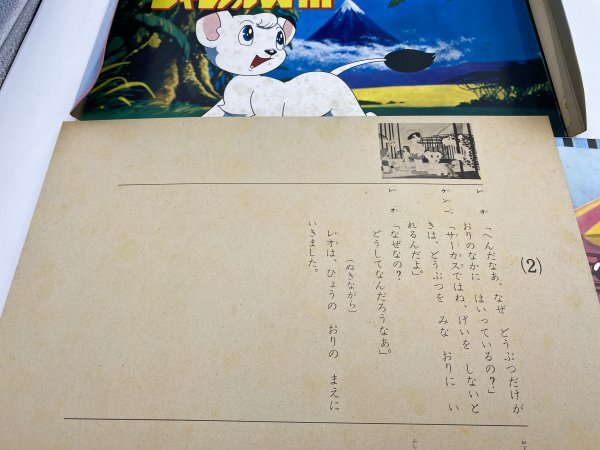 (2)
レオ「へんだなあ、なぜ どうぶつだけが
おりのなかに はいっているの？」
ケン一「サーカスではね、げいを しないと
きは、どうぶつを みな おりに い
れるんだよ。」
レオ「なぜなの？
どうしてなんだろうなあ」。
(ぬきながら)
レオは、ひょうの おりの まえに
いきました。